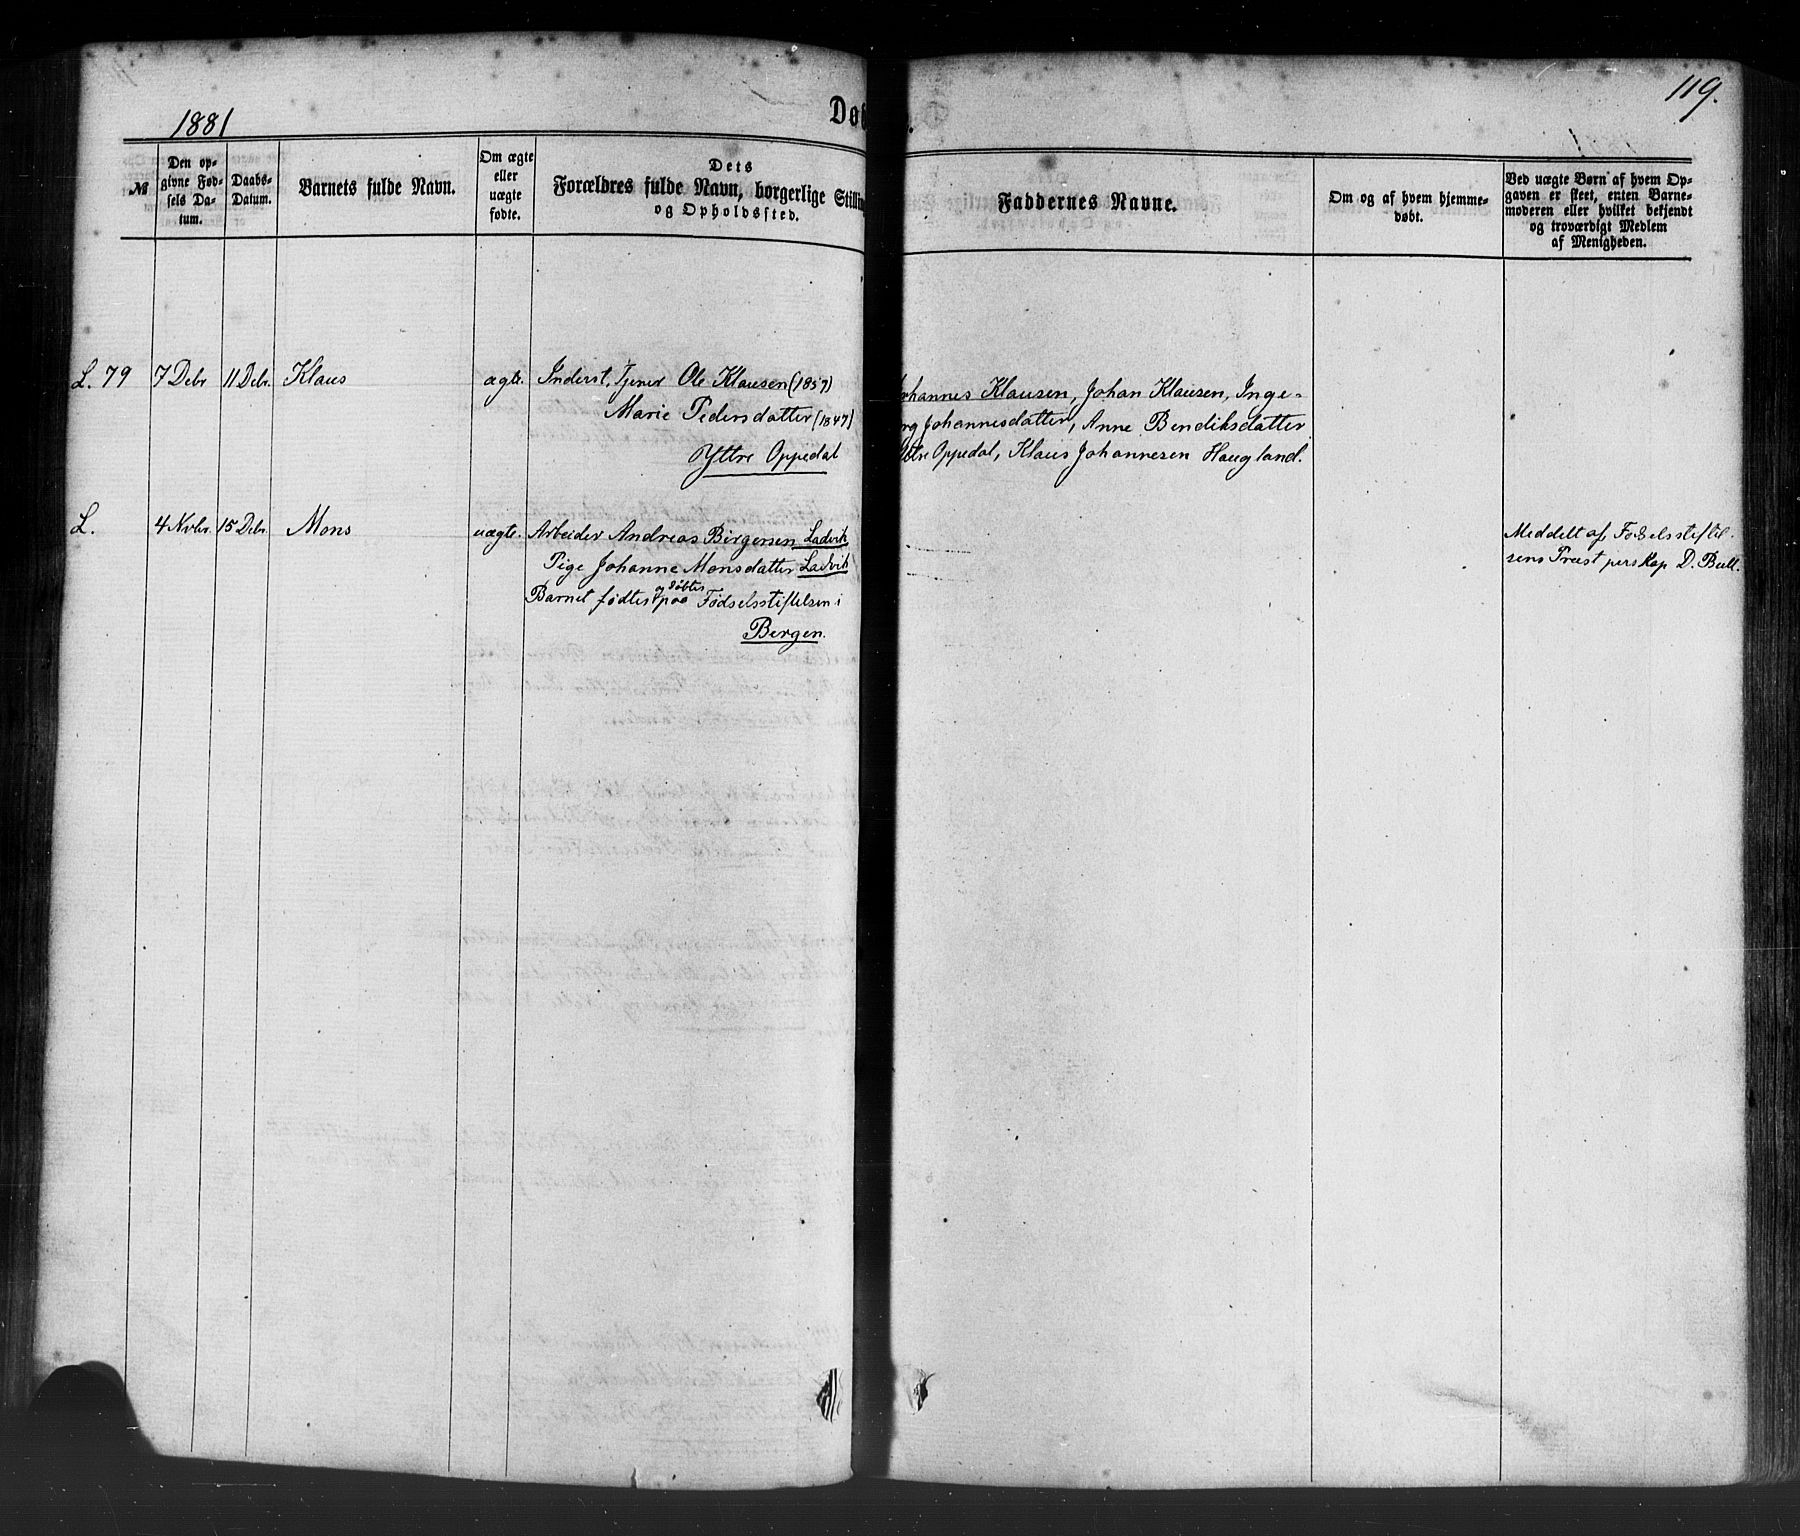 1881
Dø
119.
№
Den op-
givne Fød-
sels Da-
tum.
Daabs-
Datum.
Barnets fulde Navn.
Om ægte
eller
uægte
fødte.
Dets
Forældres fulde Navn, borgerlige Stillin
og Opholdssted.
Faddernes Navne.
Om og af hvem hjemme-
døbt.
Ved uægte Børn af hvem Op-
gaven er skeet, enten Barne-
moderen eller hvilket bekjendt
og troværdigt Medlem
af Menigheden.
L. 79 7 Debr 11 Debr. Klaus ægte. Inderst, Tjener Ole Klausen (1857)
Marie Pedersdatter (1847)
Yttre Oppedal
ohannes Klausen, Johan Klausen, Inge-
rg Johannesdatter, Anne Bendiksdatter
Oppedal, Klaus Johannesen Haugland.
L. 4 Nvbr. 15 Debr. Mons uægte. Arbeider Andreas Birgersen Ladvik
Pige Johanne Monsdatter Ladvik
Barnet fødtes og døbtes paa Fødselsstiftelsen i
Bergen.
Meddelt af Fødselsstiftel-
sens Præst perskap D. Bull.